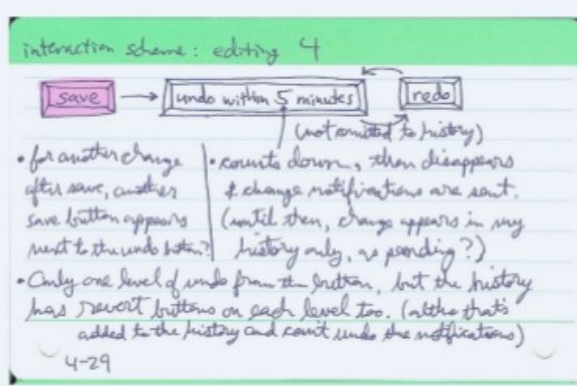 interaction scheme: editing 4
save → undo within 5 minutes redo
(not omitted to history)
• for another change
after save, another
save button appears
next to the undo button?
• counts down, then disappears
& change notifications are sent.
(until then, change appears in my
history only, as pending?)
• Only one level of undo from the button, but the history
has revert buttons on each level too. (altho that's
added to the history and can't undo the notifications)
4-29